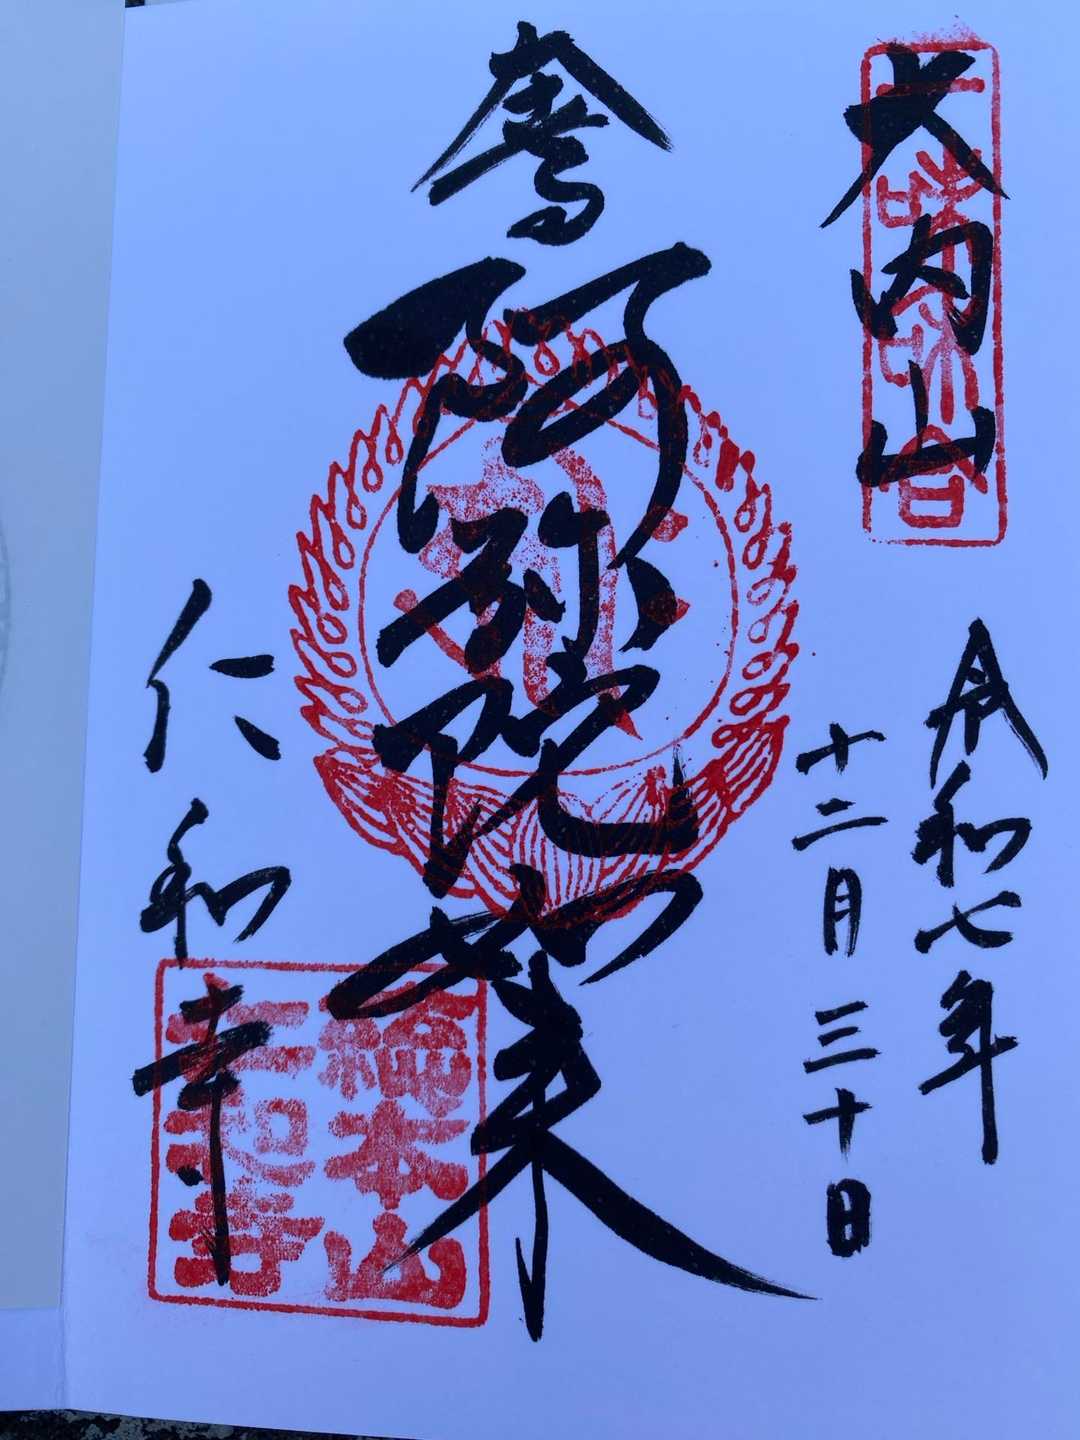 大内山
令和七年
十二月三十日
奉
阿弥陀如来
仁和寺
総本山
仁和寺